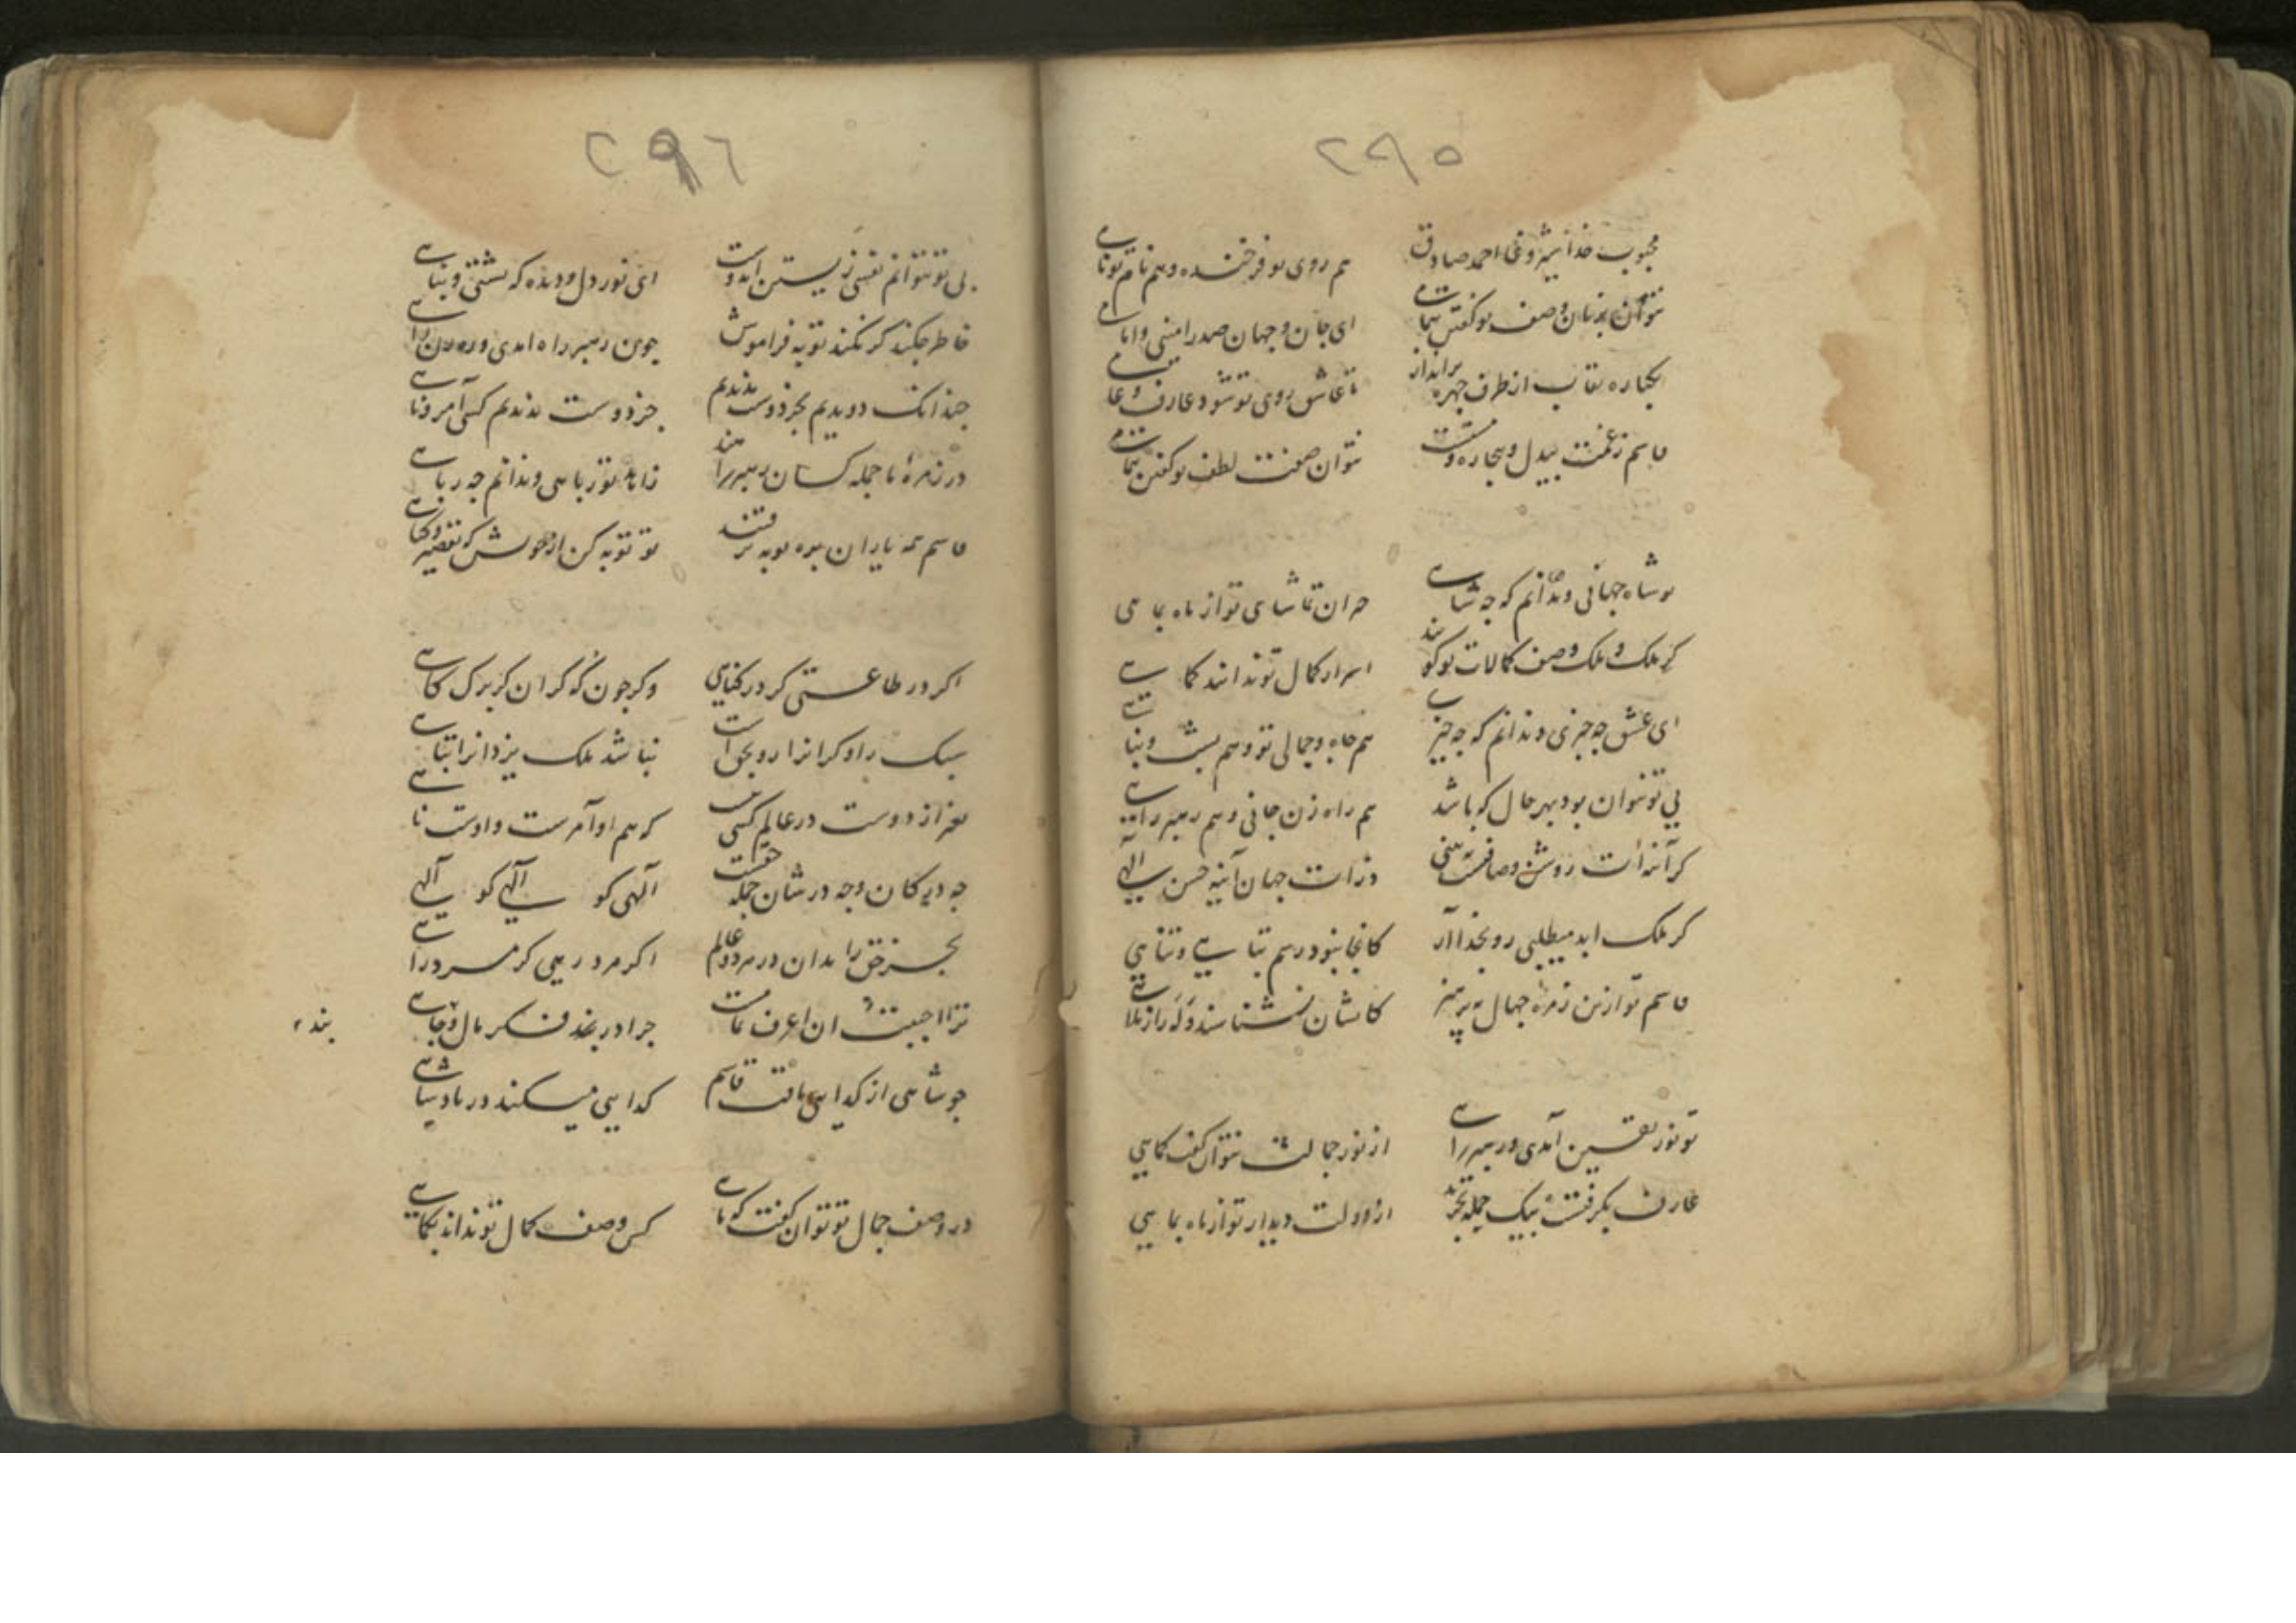 ۲۹۵
محبوب خدا احمد صادق هم روی تو فرخنده و هم نام تو نامی
نتوان بزبان وصف تو گفتن بتمامی ای جان و جهان صدر امینی و امامی
یکباره نقاب از طرف چهره برانداز تا عاشق روی تو شود عارف و عامی
قاسم ز غمت بیدل و بیچاره و نتوان صفت لطف تو گفتن بتمامی
تو شاه جهانی و ندانم که چه شاهی حیران تماشای تو از ماه بماهی
گر ملک و ملک وصف کمالات تو گویند اسرار کمال تو ندانند کماهی
ای عشق چه چیزی و ندانم که چه چیزی هم جاه و جمالی تو و هم پشت و پناهی
بی تو نتوان بود بهر حال که باشد هم راه زن جانی و هم رهبر راهی
گر آینه ات روشن و صافست ببینی ذرات جهان آینه حسن الهی
گر ملک ابد میطلبی رو بخدا آر کانجا نبود رسم تباهی و تناهی
قاسم تو ازین زمره جهال بپرهیز کایشان نشناسند
تو نور یقین آمدی و رهبر راهی از نور جمالت نتوان گفت کماهی
عارف بیک جمله ار دولت دیدار تو از ماه بماهی
۲۹۶
بی تو نتوانم نفسی زیستن ای دوست ای نور دل و دیده که پشتی و پناهی
خاطر چکند گر نکند توبه فراموش چون رهبر راه آمدی و رهزن راهی
چندانک دویدیم بجز دوست ندیدیم جز دوست ندیدم کسی آمر و ناهی
در زمره ما جمله کسان رهبر راهند زاهد تو ز ما می و ندانم چه ز راهی
قاسم همه یاران بره توبه برفتند تو توبه کن از خویش که
اگر در طاعتی گر در گناهی وگر چون که گران گر برگ کاهی
سبک رو گرانرا رو بحق است نباشد ملک یزدانرا تباهی
بغیر از دوست در عالم کسی نیست که هم او آمرست و اوست ناهی
چه در کان وچه در شان جمله حقست الهی گو الهی گو الهی
بجز حق را مدان در هر دو عالم اگر مرد رهی گر مرد راهی
ترا احببت ان اعرف تمامست چرا در بند فکر مال و جاهی
بند
چو شاهی از گدایی یافت قاسم گدایی میکند در پادشاهی
در وصف جمال تو توان گفت که ماهی کس وصف کمال تو نداند بکماهی